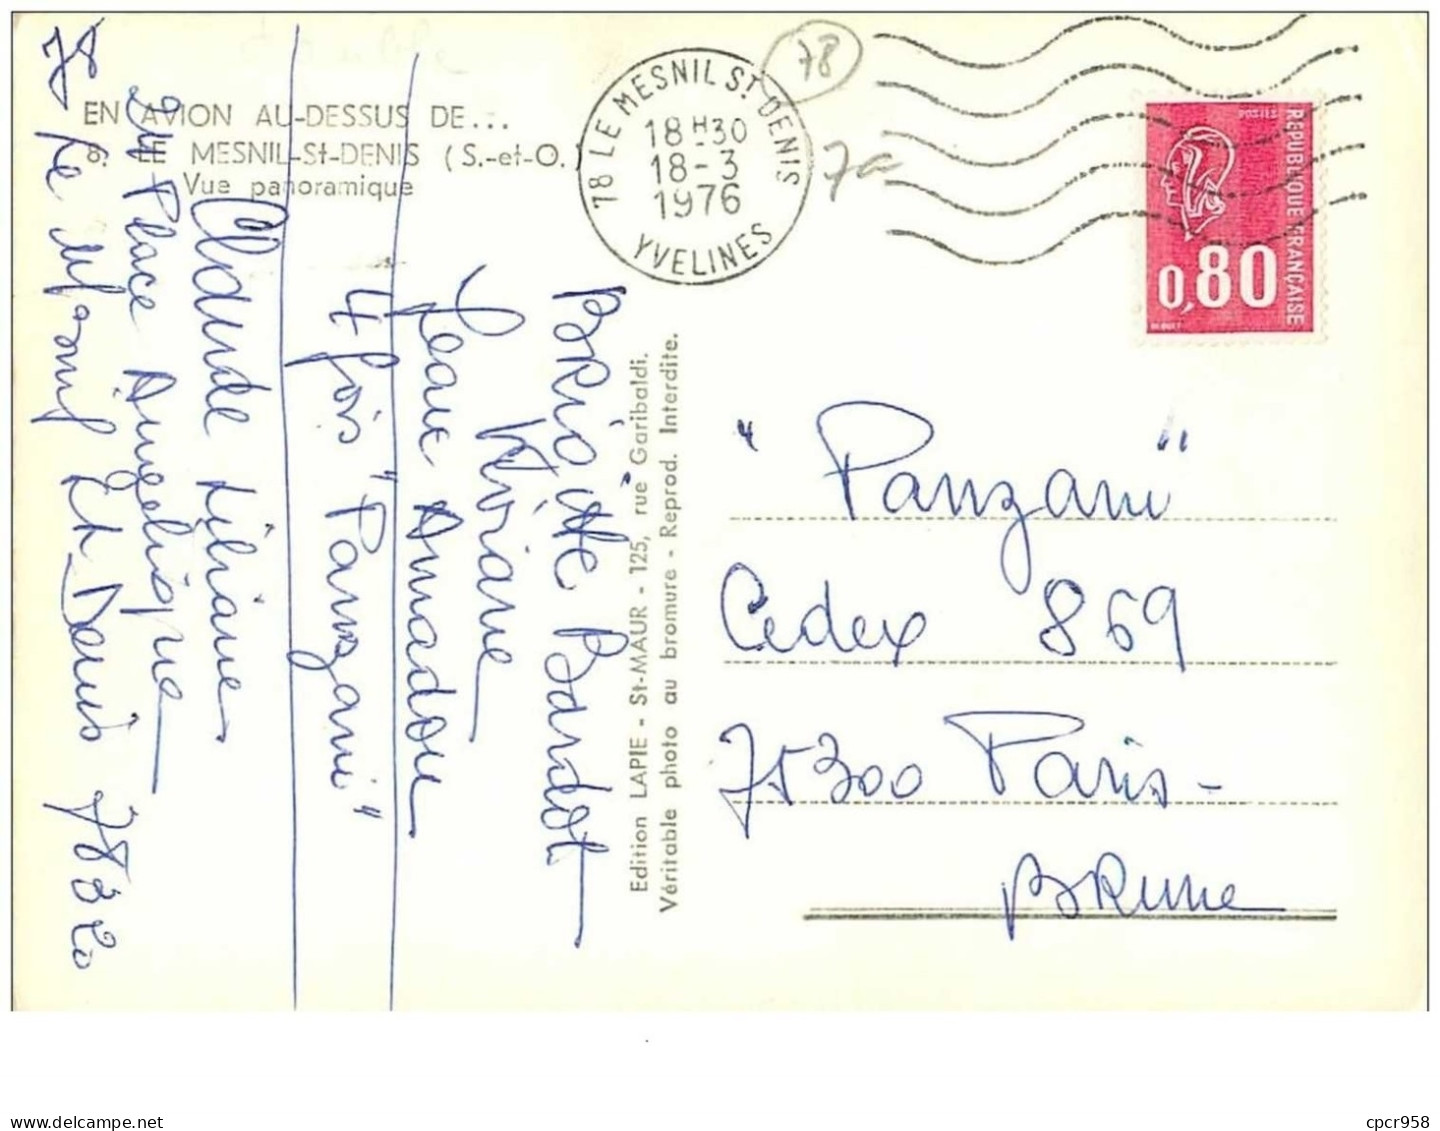 EN AVION AU-DESSUS DE...
LE MESNIL-St-DENIS (S.-et-O.)
Vue panoramique
78 LE MESNIL ST DENIS
18H30
18-3
1976
YVELINES
78
7a
REPUBLIQUE FRANÇAISE
POSTES
0,80
BRigitte Bardot
Viviane
Jean Amadou
4 fois "Panzani"
Claude Liliane
24 Place Angelique
78 Le Mesnil St Denis 78320
Edition LAPIE - St-MAUR - 125, rue Garibaldi.
Véritable photo au bromure - Reprod. Interdite.
"Panzani"
Cedex 869
75300 Paris-
BRUNE
cpcr958